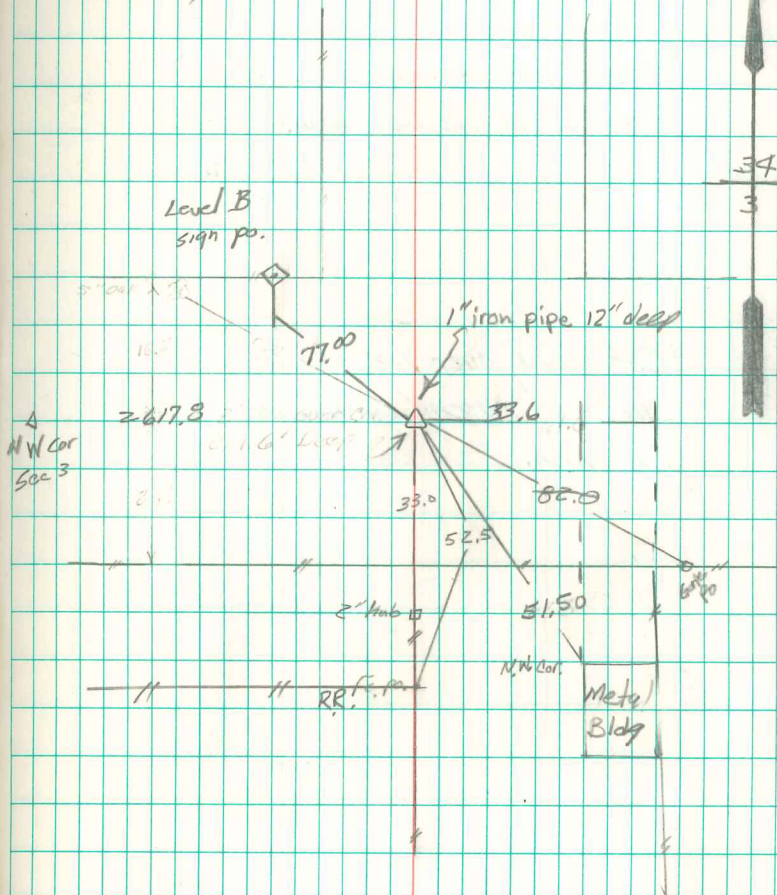 34
3
Level B
sign po.
1" iron pipe 12" deep
77.00
2617.8
33.6
N W Cor
Sec 3
82.0
33.0
52.5
2" Hub
51.50
N.W. Cor.
RR. po.
Metal
Bldg